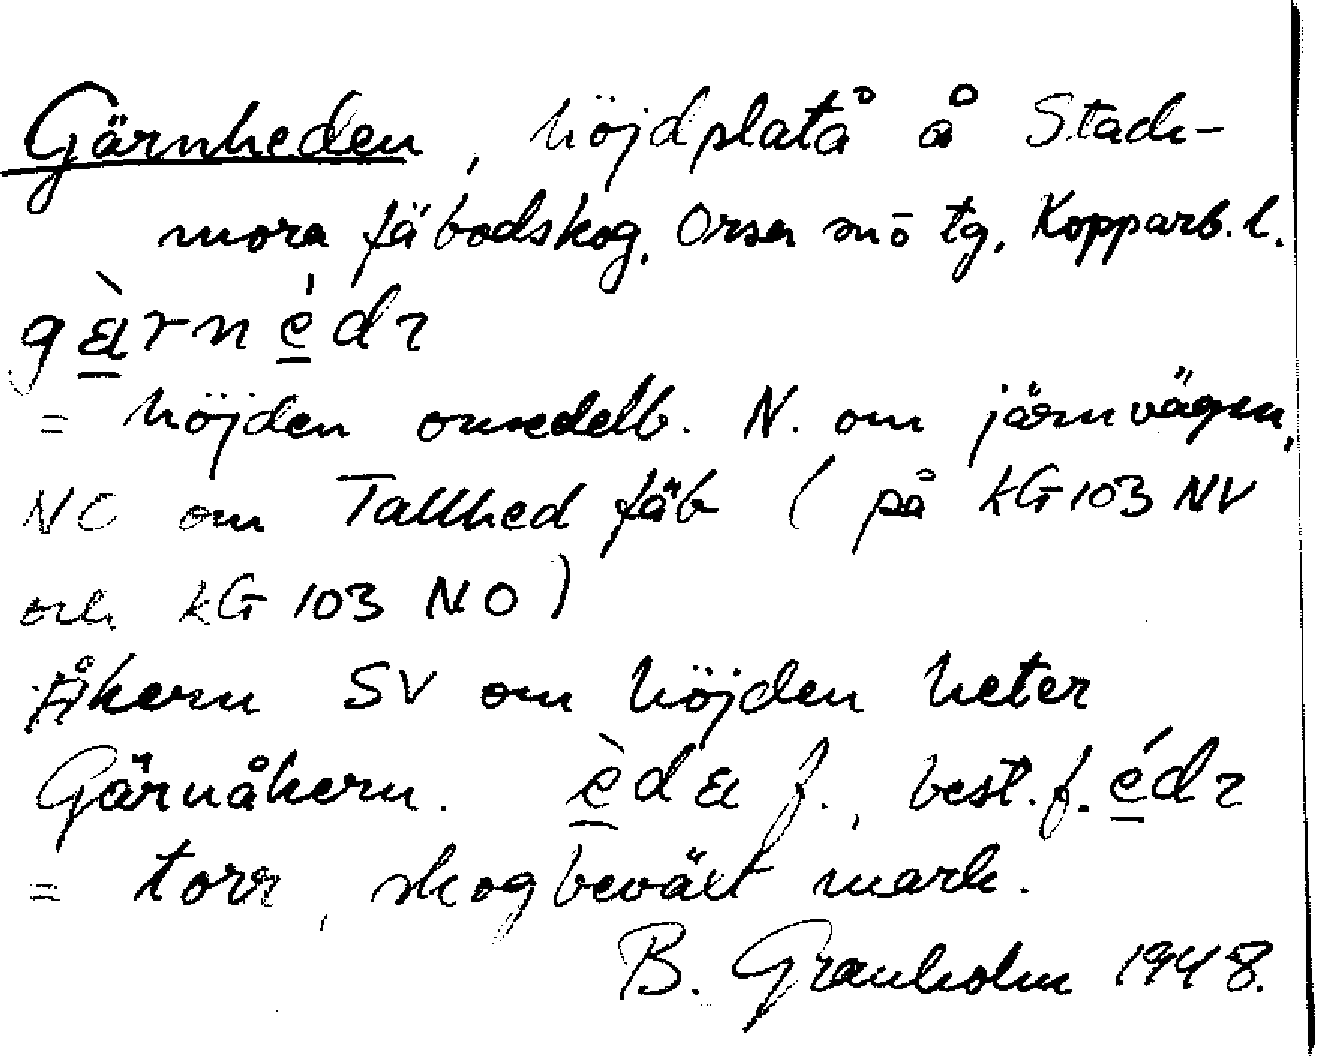 Gärnheden, höjdplatå å Stack-
mora fäbodskog, Orsa sn ō tg, Kopparb. l.
gæ̀rnédɿ
= höjden omedelb. N. om järnvägen,
NO om Tallhed fäb ( på kG 103 NV
och kG 103 NO)
Åkern SV om höjden heter
Gärnåkern. èdæ f., best. f. édɿ
= torr, skogbeväxt mark.
B. Granholm 1948.